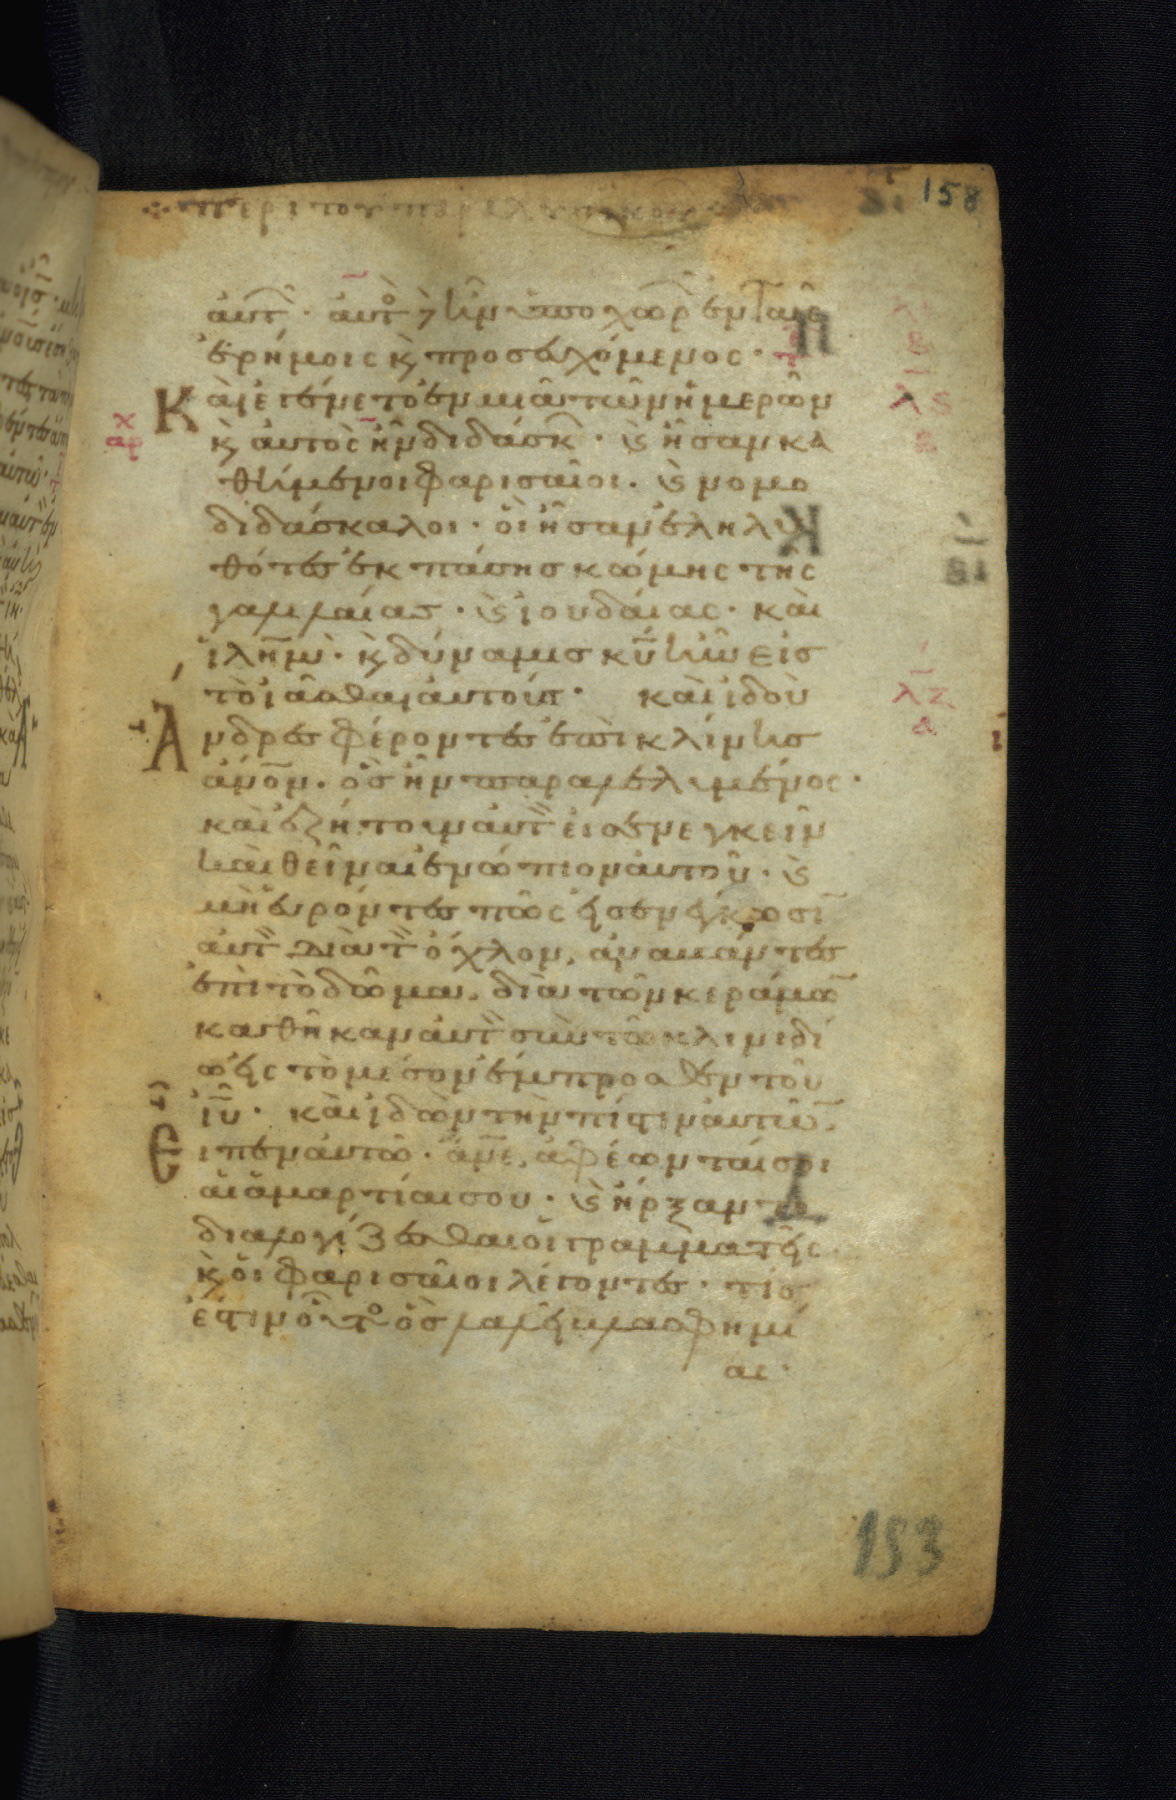 περι του παραλυτικου
158
αυτ̑· αυτὸς δὲ ἦν ὑποχωρ ἐν ταῖς
ἐρήμοις κ̀ προσευχόμενος·
Καὶ ἐγένετο ἐν μιᾶ τῶν ἡμερῶν
κ̀ αυτὸς ἦν διδάσκ· κ̀ ἦσαν κα
θήμενοι φαρισαῖοι· κ̀ νομο
διδάσκαλοι· οἳ ἦσαν ἐληλυ
θότες ἐκ πάσης κώμης της
γαλιλαίας· κ̀ ἰουδαίας· καὶ
ἱλημ̄· κ̀ δύναμις κῡ ἦν εἰς
τὸ ἰᾶσθαι ἀυτούς· καὶ ἰδοὺ
Ἄνδρες φέροντες ἐπὶ κλίνης
ἄνο̄ν· ὃς ἦν παραλελυμένος·
καὶ ἐζήτουν ἀυτ̏ εἰσενεγκεῖν
καὶ θεῖναι ἐνώπιον ἀυτοῦ· κ̀
μὴ ἑυρόντες πῶς εἰσενέγκωσῑ
ἀυτ̏ διὰ τ̏ ὄχλον, ἀναβάντες
ἐπὶ τὸ δῶμα, διὰ τῶν κεράμω̄
καθῆκαν ἀυτ̏ σὺν τῶ κλινιδί
ω εἰς τὸ μέσον ἔμπροσθεν τοῦ
ἰῡ· καὶ ἰδὼν τὴν πίστιν ἀυτῶ̄,
Εἶπεν ἀυτῶ· ἄν̄ε, ἀφέωνταί σοι
αἱ ἁμαρτίαι σου· κ̀ ἤρξαντο
διαλογίζεσθαι οἱ γραμματεῖς
κ̀ οἱ φαρισαῖοι λέγοντες· τίς
ἐστιν οὗτο ὃς λαλεῖ βλασφημί
ας·
λς
λζ
153